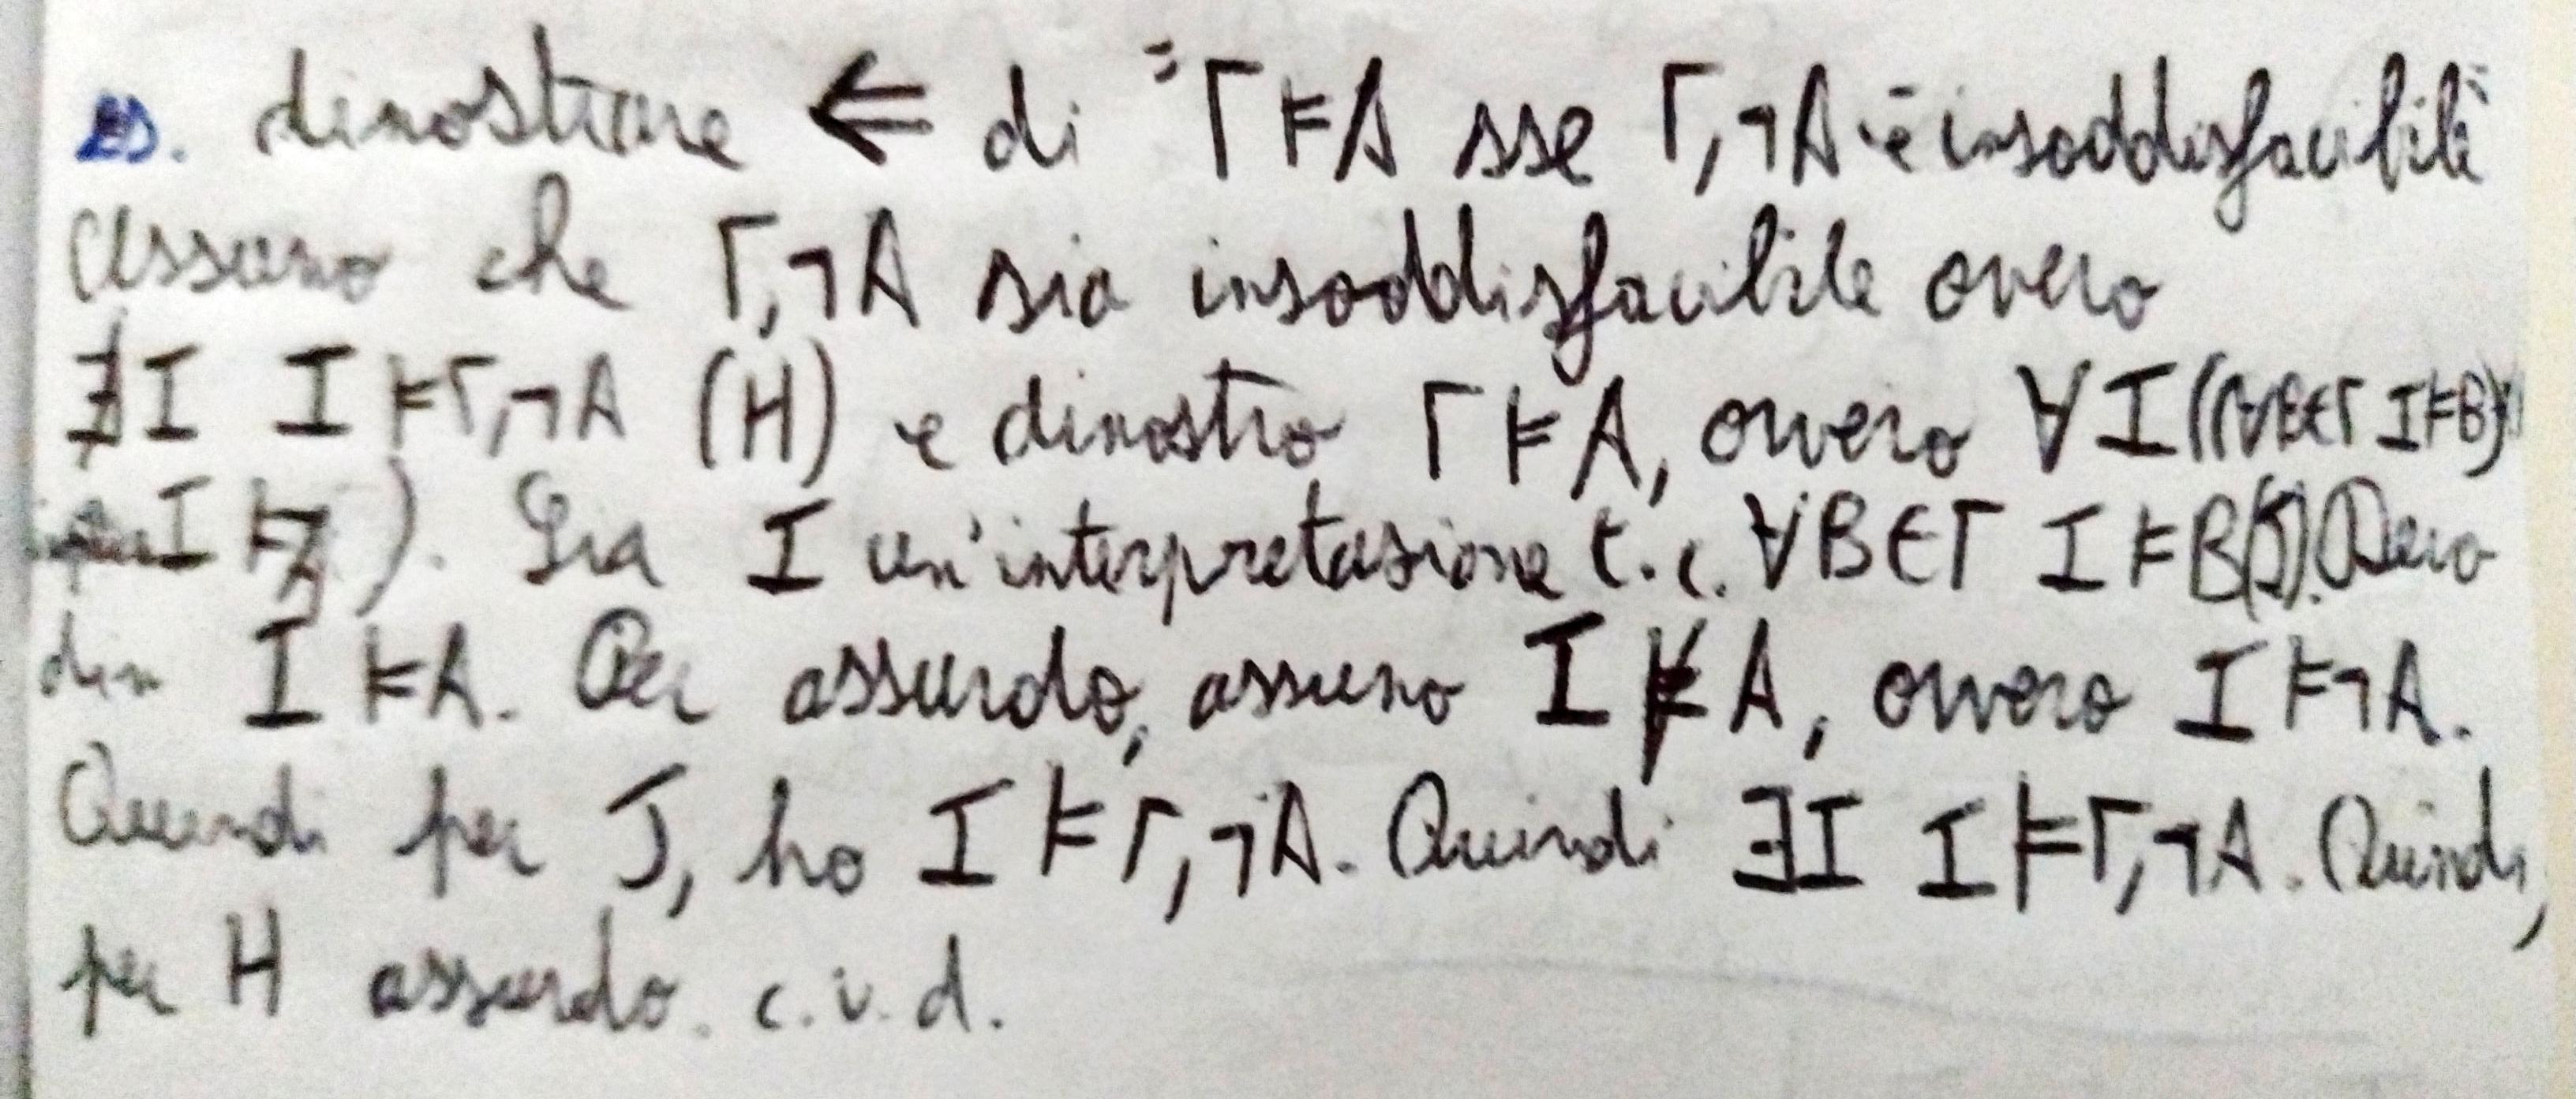 es. dimostrare ⇐ di "Γ ⊨ A sse Γ,¬A è insoddisfacibile"
Assumo che Γ,¬A sia insoddisfacibile ovvero
∄I I ⊨ Γ,¬A (H) e dimostro Γ ⊨ A, ovvero ∀I((∀B∈Γ I⊨B)
I ⊨ A). Sia I un'interpretazione t.c. ∀B∈Γ I ⊨ B(J). Devo
dim I ⊨ A. Per assurdo, assumo I ⊭ A, ovvero I ⊨ ¬A.
Quindi per J, ho I ⊨ Γ,¬A. Quindi ∃I I ⊨ Γ,¬A. Quindi,
per H assurdo. c.v.d.